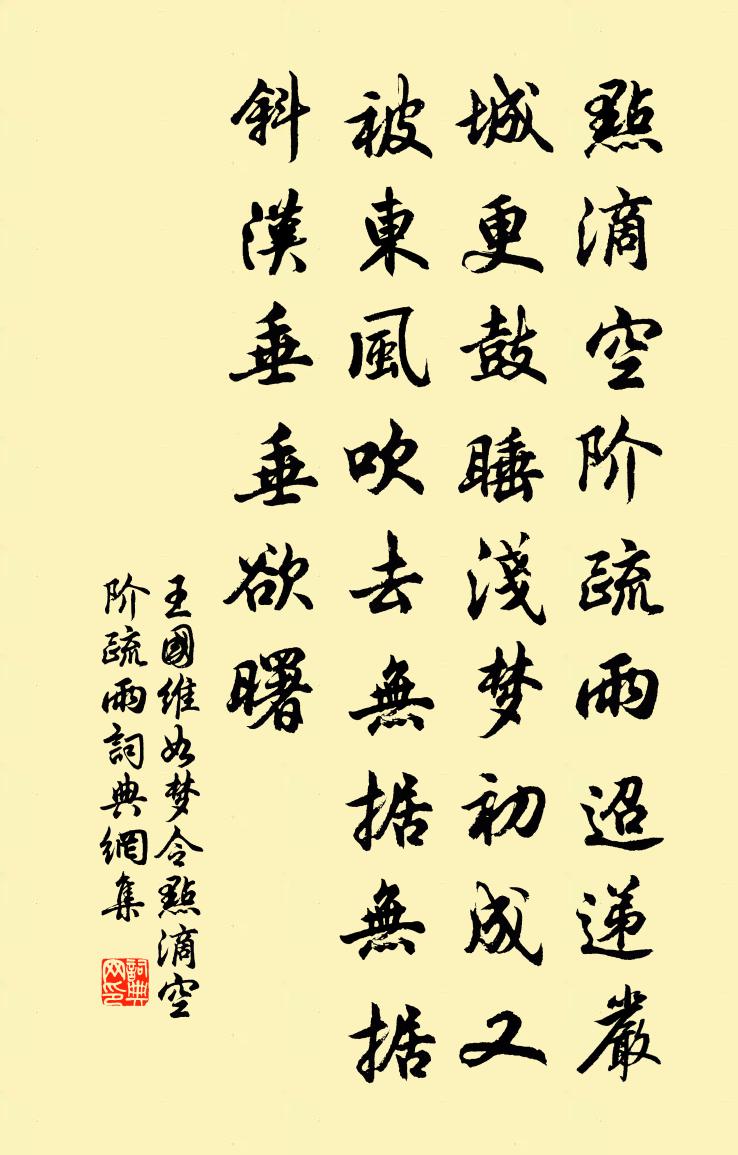 點滴空阶疏雨迢递嚴
城更鼓睡淺梦初成又
被東風吹去無据無据
斜漢垂垂欲曙
王國維如梦令點滴空
阶疏雨詞典網集
詞典网印